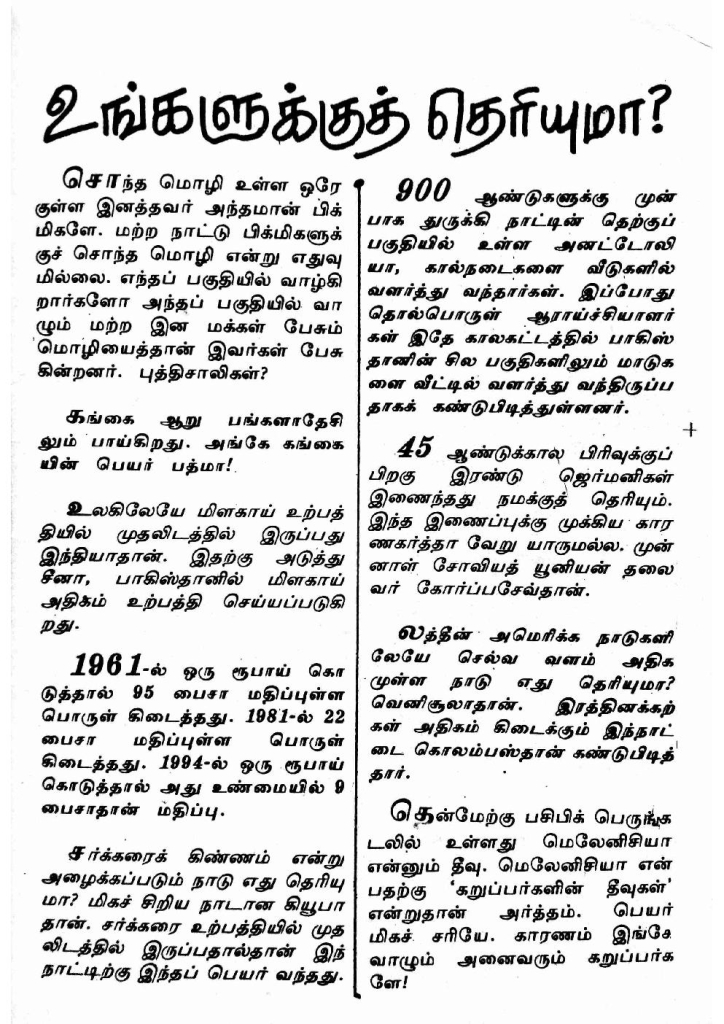 உங்களுக்குத் தெரியுமா?
சொந்த மொழி உள்ள ஒரே
குள்ள இனத்தவர் அந்தமான் பிக்
மிகளே. மற்ற நாட்டு பிக்மிகளுக்
குச் சொந்த மொழி என்று எதுவு
மில்லை. எந்தப் பகுதியில் வாழ்கி
றார்களோ அந்தப் பகுதியில் வா
ழும் மற்ற இன மக்கள் பேசும்
மொழியைத்தான் இவர்கள் பேசு
கின்றனர். புத்திசாலிகள்?
கங்கை ஆறு பங்களாதேசி
லும் பாய்கிறது. அங்கே கங்கை
யின் பெயர் பத்மா!
உலகிலேயே மிளகாய் உற்பத்
தியில் முதலிடத்தில் இருப்பது
இந்தியாதான். இதற்கு அடுத்து
சீனா, பாகிஸ்தானில் மிளகாய்
அதிகம் உற்பத்தி செய்யப்படுகி
றது.
1961-ல் ஒரு ரூபாய் கொ
டுத்தால் 95 பைசா மதிப்புள்ள
பொருள் கிடைத்தது. 1981-ல் 22
பைசா மதிப்புள்ள பொருள்
கிடைத்தது. 1994-ல் ஒரு ரூபாய்
கொடுத்தால் அது உண்மையில் 9
பைசாதான் மதிப்பு.
சர்க்கரைக் கிண்ணம் என்று
அழைக்கப்படும் நாடு எது தெரியு
மா? மிகச் சிறிய நாடான கியூபா
தான். சர்க்கரை உற்பத்தியில் முத
லிடத்தில் இருப்பதால்தான் இந்
நாட்டிற்கு இந்தப் பெயர் வந்தது.
900 ஆண்டுகளுக்கு முன்
பாக துருக்கி நாட்டின் தெற்குப்
பகுதியில் உள்ள அனட்டோலி
யா, கால்நடைகளை வீடுகளில்
வளர்த்து வந்தார்கள். இப்போது
தொல்பொருள் ஆராய்ச்சியாளர்
கள் இதே காலகட்டத்தில் பாகிஸ்
தானின் சில பகுதிகளிலும் மாடுக
ளை வீட்டில் வளர்த்து வந்திருப்ப
தாகக் கண்டுபிடித்துள்ளனர்.
45 ஆண்டுக்கால பிரிவுக்குப்
பிறகு இரண்டு ஜெர்மனிகள்
இணைந்தது நமக்குத் தெரியும்.
இந்த இணைப்புக்கு முக்கிய கார
ணகர்த்தா வேறு யாருமல்ல. முன்
னாள் சோவியத் யூனியன் தலை
வர் கோர்ப்பசேவ்தான்.
லத்தீன் அமெரிக்க நாடுகளி
லேயே செல்வ வளம் அதிக
முள்ள நாடு எது தெரியுமா?
வெனிசூலாதான். இரத்தினக்கற்
கள் அதிகம் கிடைக்கும் இந்நாட்
டை கொலம்பஸ்தான் கண்டுபிடித்
தார்.
தென்மேற்கு பசிபிக் பெருங்க
டலில் உள்ளது மெலேனிசியா
என்னும் தீவு. மெலேனிசியா என்
பதற்கு 'கறுப்பர்களின் தீவுகள்'
என்றுதான் அர்த்தம். பெயர்
மிகச் சரியே. காரணம் இங்கே
வாழும் அனைவரும் கறுப்பர்க
ளே!